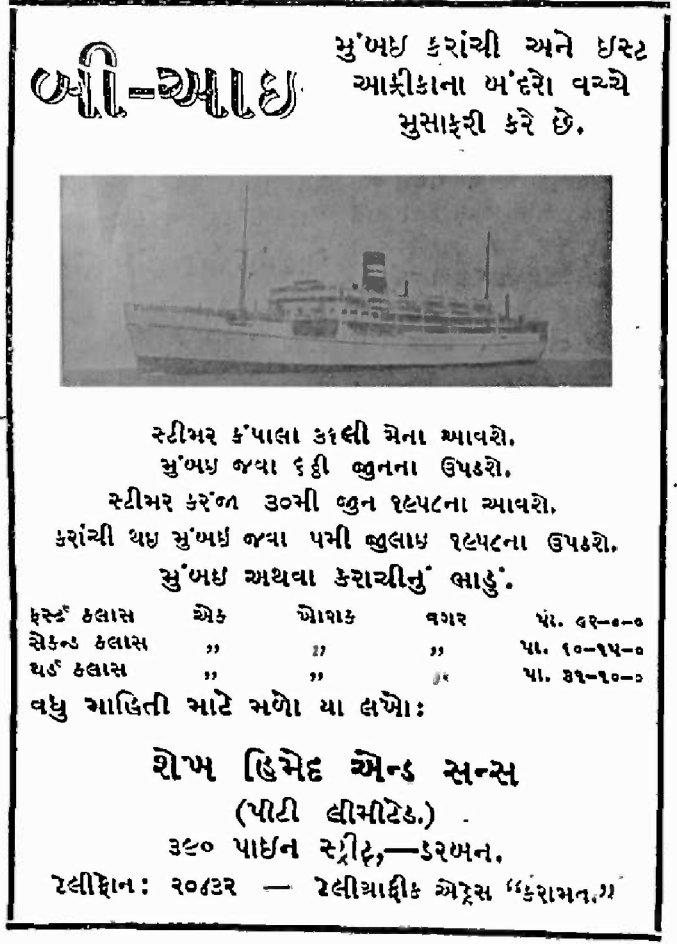 બી-આઇ
મુંબઇ કરાંચી અને ઇસ્ટ
આફ્રીકાના બંદરો વચ્ચે
મુસાફરી કરે છે.
સ્ટીમર કંપાલા ૩૧લી મેના આવશે.
મુંબઇ જવા ૬ઠ્ઠી જુનના ઉપડશે.
સ્ટીમર કરંજા ૩૦મી જુન ૧૯૫૮ના આવશે.
કરાંચી થઇ મુંબઇ જવા ૫મી જુલાઇ ૧૯૫૮ના ઉપડશે.
મુંબઇ અથવા કરાચીનું ભાડું.
ફર્સ્ટ કલાસ એક ખોરાક વગર પાં. ૯૨-૦-૦
સેકન્ડ કલાસ ,, ,, ,, પા. ૬૦-૧૫-૦
થર્ડ કલાસ ,, ,, પા. ૩૧-૧૦-૦
વધુ માહિતી માટે મળો યા લખો:
શેખ હિમેદ એન્ડ સન્સ
(પીટી લીમીટેડ.)
૩૯૦ પાઇન સ્ટ્રીટ,—ડરબન.
ટેલીફોન: ૨૦૪૩૨ — ટેલીગ્રાફીક એડ્રેસ “કરામત.”